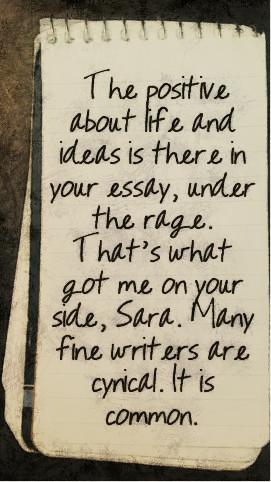 The positive
about life and
ideas is there in
your essay, under
the rage.
That's what
got me on your
side, Sara. Many
fine writers are
cynical. It is
common.